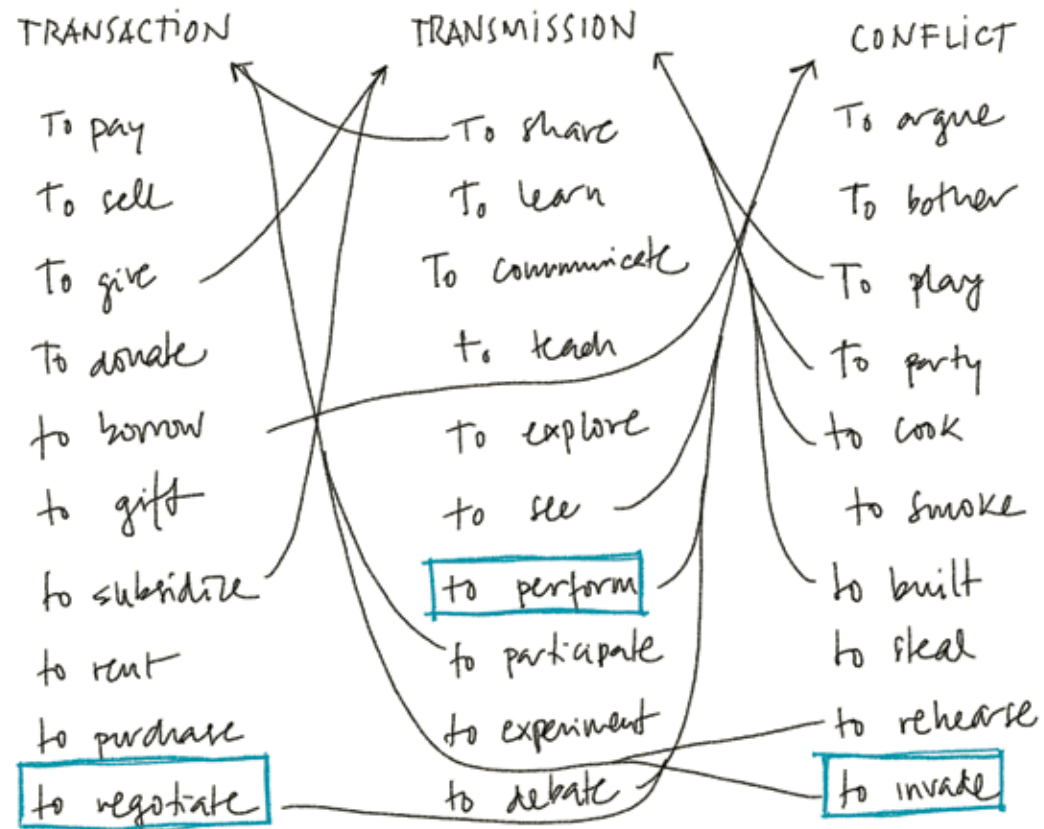 TRANSACTION
To pay
To sell
To give
To donate
to borrow
to gift
to subsidize
to rent
to purchase
to negotiate
TRANSMISSION
To share
To learn
To communicate
to teach
To explore
to see
to perform
to participate
to experiment
to debate
CONFLICT
To argue
To bother
To play
To party
to cook
to smoke
to built
to steal
to rehearse
to invade